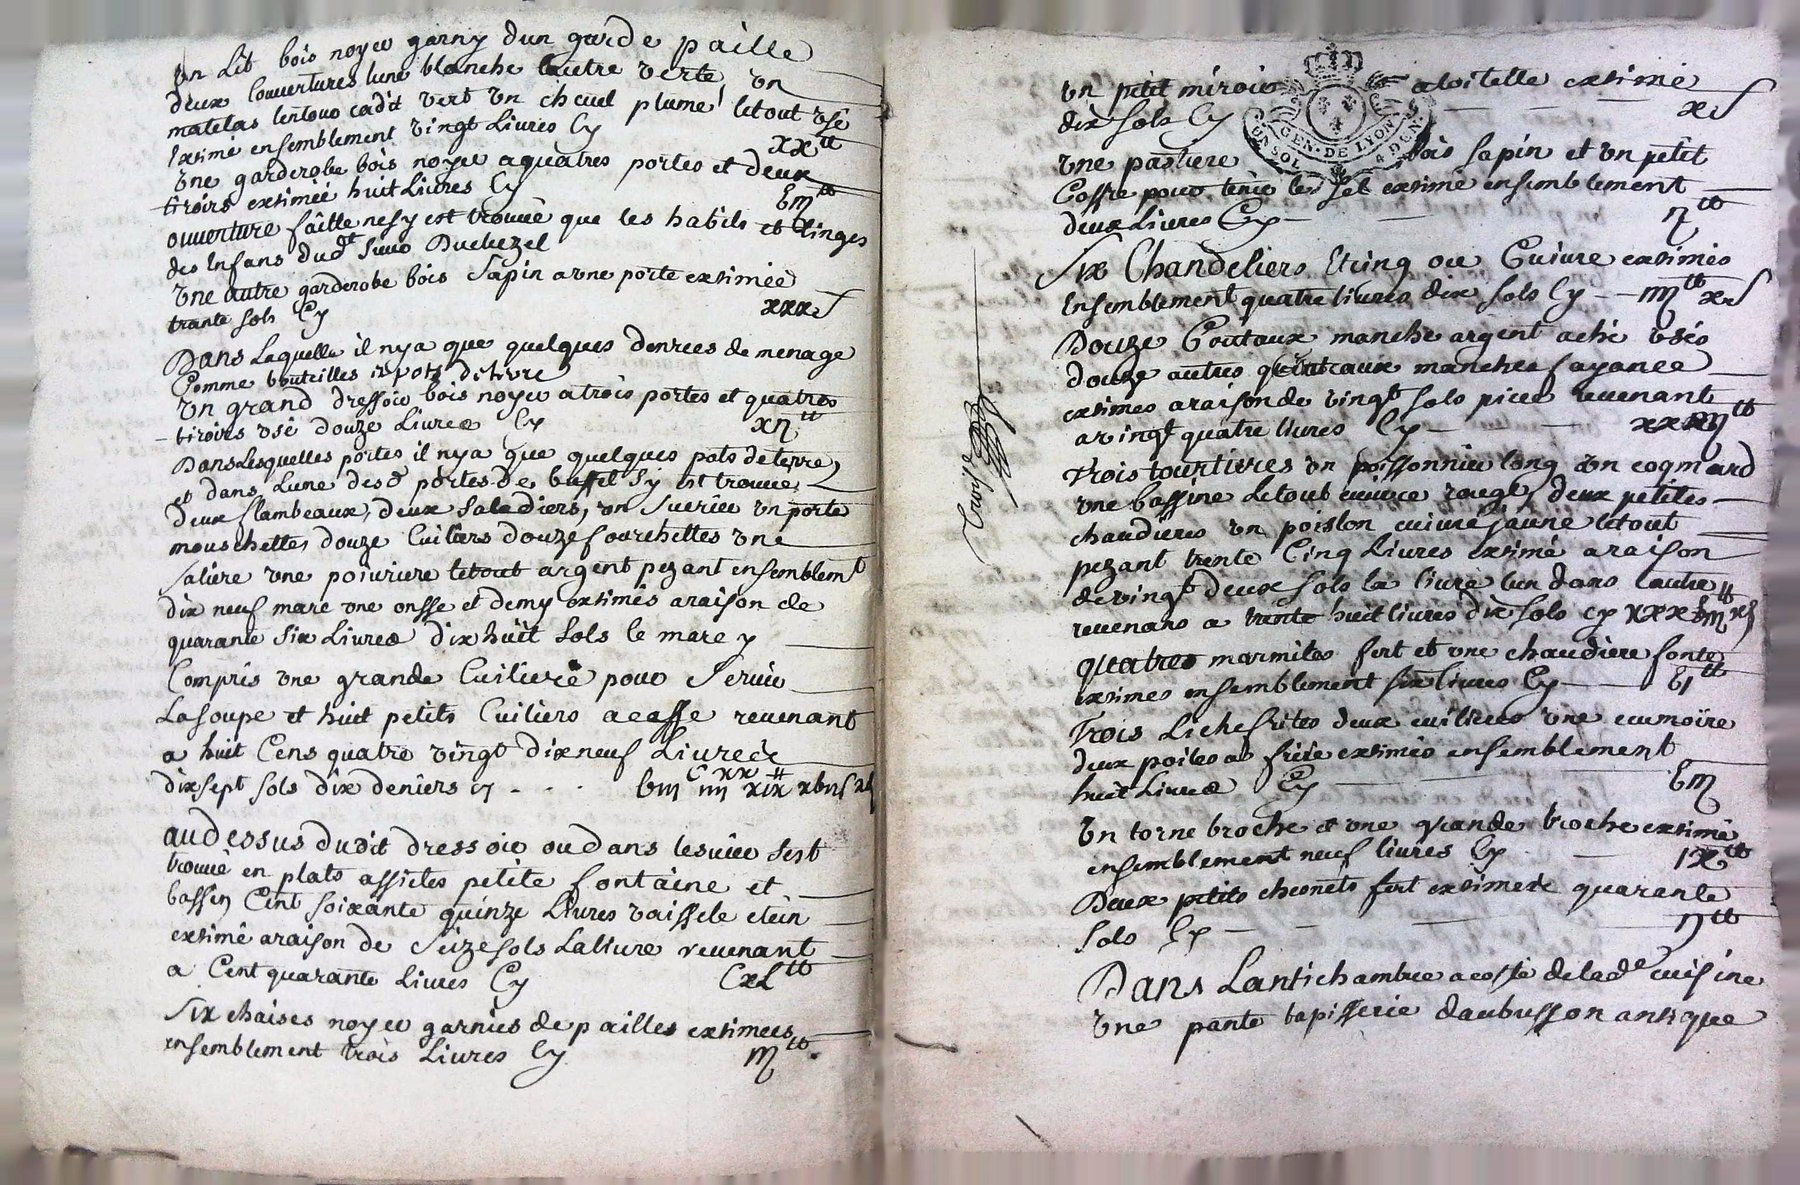 un Lit bois noyer garny dun garde paille
deux Couvertures lune blanche lautre verte un
matelas lentour cadis vert un cheuet plume letout usé
Extimé ensemblement vingt Livres Cy xx₶
une garderobe bois noyer aquatres portes et deux
tiroirs extimée huit Livres Cy bııȷ₶
ouverture faitte nesy est trouvé que les habits et Linges
des Enfans dud.t Sieur Duchezel
une autre garderobe bois Sapin aune porte extimée
trante sols Cy xxxs
Dans Laquelle il nya que quelques denrees de menage
Comme bouteilles et pots
un grand dressoir bois noyer atrois portes et quatres
tiroirs usé douze Livres Cy xıȷ₶
Dans Lesquelles portes il nya que quelques pots deterre
et dans Lune desd. portes de buffet Sy est trouvé
deux flambeaux, deux Saladiers, un Sucrier un porte
mouschettes douze Cuiliers douze fourchettes une
saliere une poivriere letout argent pezant ensemblemt
dix neuf marc une onsse et demy extimés araison de
quarante six Livres dix huit sols le marc y
Compris une grande Cuiliere pour Servir
Lasoupe et huit petits Cuiliers acaffe revenant
a huit Cens quatre vingt dixneuf Livres
dixsept sols dix deniers cy - - - bııȷ C ıııȷ xx xıx ₶ xbıȷs xd
audessus dudit dressoir ou dans Lesvier sest
trouvé en plats assietes petite fontaine et
bassin Cent soixante quinze Livres vaissele etain
extimé araison de Seize sols Lalivre revenant
a Cent quarante Livres Cy CxL₶
Six chaises noyer garnies de pailles extimees
ensemblement trois Livres Cy ııȷ₶
un petit miroir atoilette extimé
dix sols Cy xs
GEN. DE LYON
UN SOL 4 DEN.
une pastiere bois sapin et un petit
Coffre pour tenir le sel extimé ensemblement
deux Livres Cy ıȷ₶
Six Chandeliers Etcinq ou Cuivre extimés
Ensemblement quatre livres dix sols Cy ıııȷ₶ xs
Douze Coutaux manche argent aché usés
douze autres Coutaux manches fayance
extimés araison de vingt sols piece revenant
a vingt quatre livres Cy xxıııȷ₶
Trois tourtieres un poissonnier long un coqmard
une bassine Letout cuivre rouge, deux petites
chaudieres un poislon cuivre jaune letout
pezant trente Cinq Livres extimé araison
de vingt deux sols la livre lun dans lautre
revenans a trente huit livres dix sols cy xxxbııȷ₶ xs
quatres marmites fert et une chaudiere fonte
extimes ensemblement six livres Cy bı₶
Trois Lichefrites deux cuilieres une ecumoire
deux poiles a frire extimés ensemblement
huit Livres Cy bııȷ
Un torne broche et une grande broche extimé
ensemblement neuf livres Cy ıx₶
Deux petits chesnets fert extimes quarante
sols Cy ıȷ₶
Dans Lantichambre acosté delad.e cuisine
une pante tapisserie daubusson antique